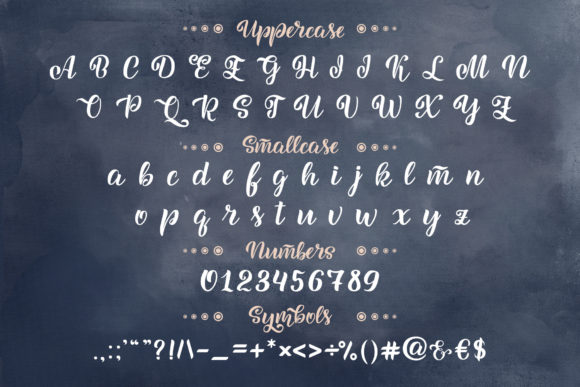 Uppercase
A B C D E F G H I J K L M N
O P Q R S T U V W X Y Z
Smallcase
a b c d e f g h i j k l m n
o p q r s t u v w x y z
Numbers
0123456789
Symbols
.,:;'“”?!/\-_=+*×<>÷%()#@&€$